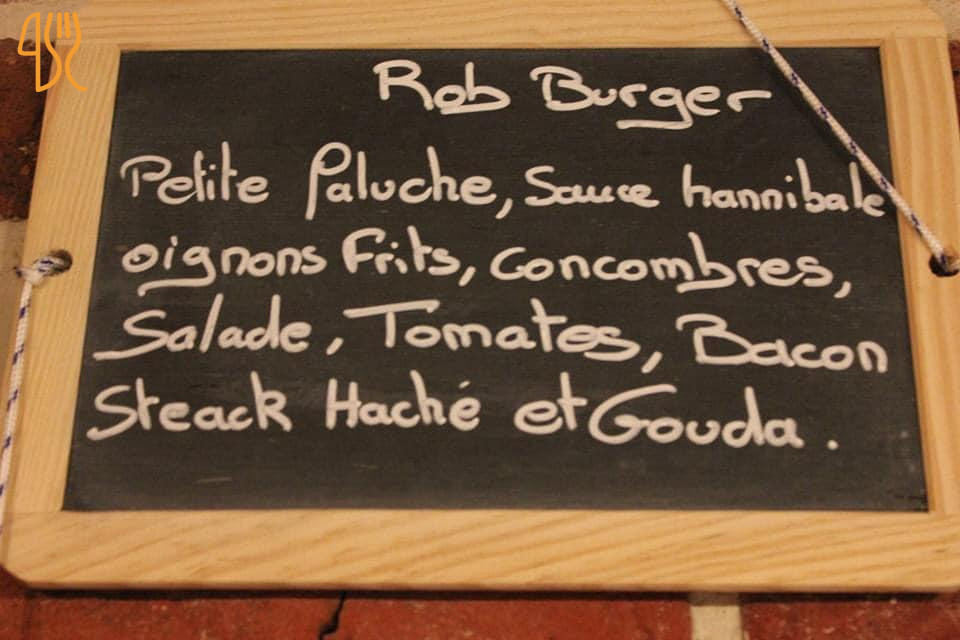 Rob Burger
Petite Paluche, Sauce hannibale
oignons Frits, concombres,
Salade, Tomates, Bacon
Steack Haché et Gouda.